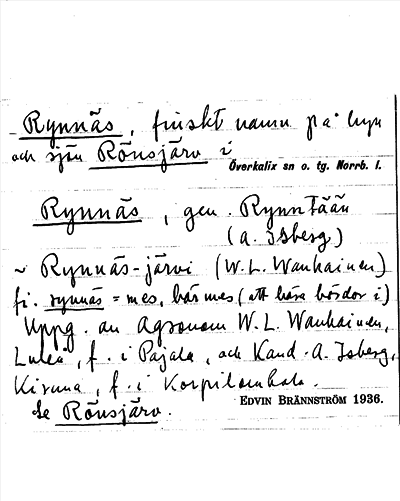 Rynnäs, finskt namn på byn
och sjön Rönsjärv i
Överkalix sn o. tg. Norrb. l.
Rynnäs, gen. Rynntään
(A. Isberg)
~ Rynnäs-järvi (W. L. Wanhainen)
fi. rynnäs = mes, bärmes (att bära bördor i)
Uppg. av Agronom W. L. Wanhainen,
Luleå, f. i Pajala, och Kand. A. Isberg,
Kiruna, f. i Korpilombolo.
Se Rönsjärv.
EDVIN BRÄNNSTRÖM 1936.